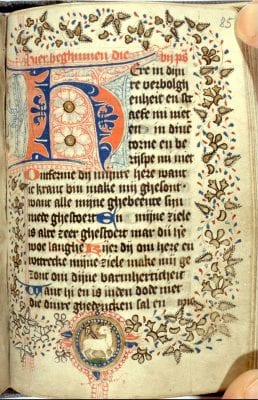 25
hier beghinnen die vij ps̄
Here in dijn
re verbolgh
enheit en str
aefe mi niet
en in dinē
torne en be
rijspe mi niet
Ontferme dij mijnre here want
ic cranc bin make mij ghesont
want alle mijne ghebeente sijn
ghestoert En mijne ziele
is alte zeer ghestoert mar du he
woe langhe Kijer dij om here en
wttrecke mijne ziele make mij ge
zont om dijne barmherticheit
Want hi en is inden dode niet
die dinre ghedencken sal en